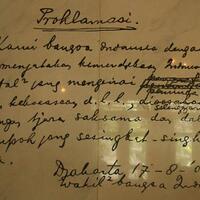 Proklamasi.
Kami bangsa Indonesia dengan
menjatakan kemerdekaan Indones
al2 jang mengenai
kekoeasaan d.l.l.,
ngan tjara saksama dan dal
mpoh jang sesingkat-singk
a.
Djakarta 17-8-0
wakil2 bangsa Indo